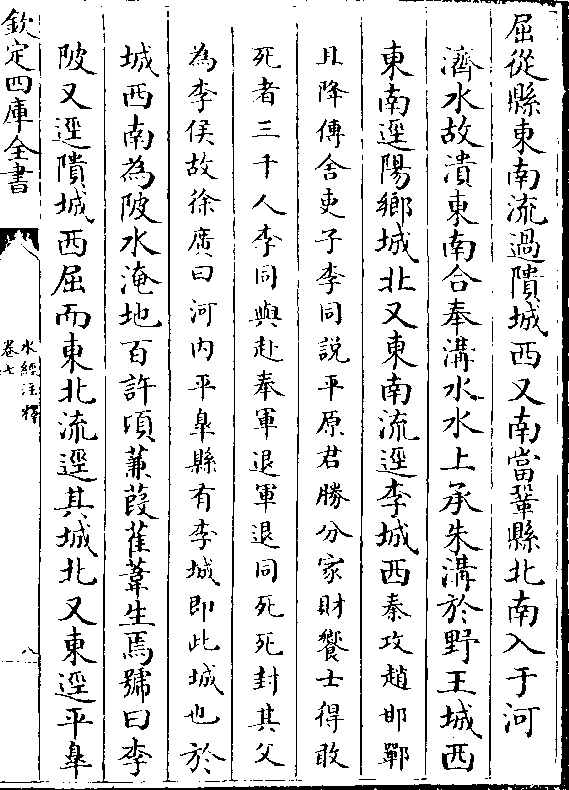 屈從縣東南流過隤城西又南當鞏縣北南入于河
濟水故瀆東南合奉溝水水上承朱溝於野王城西
東南逕陽鄉城北又東南流逕李城西秦攻趙邯鄲
且降傳舍吏子李同說平原君勝分家財饗士得敢
死者三千人李同與赴奉軍退軍退同死死封其父
為李侯故徐廣曰河内平臯縣有李城即此城也於
城西南為陂水淹地百許頃蒹葭萑葦生焉號曰李
陂又逕隤城西屈而東北流逕其城北又東逕平臯
欽定四庫全書
水經注釋
卷七
八